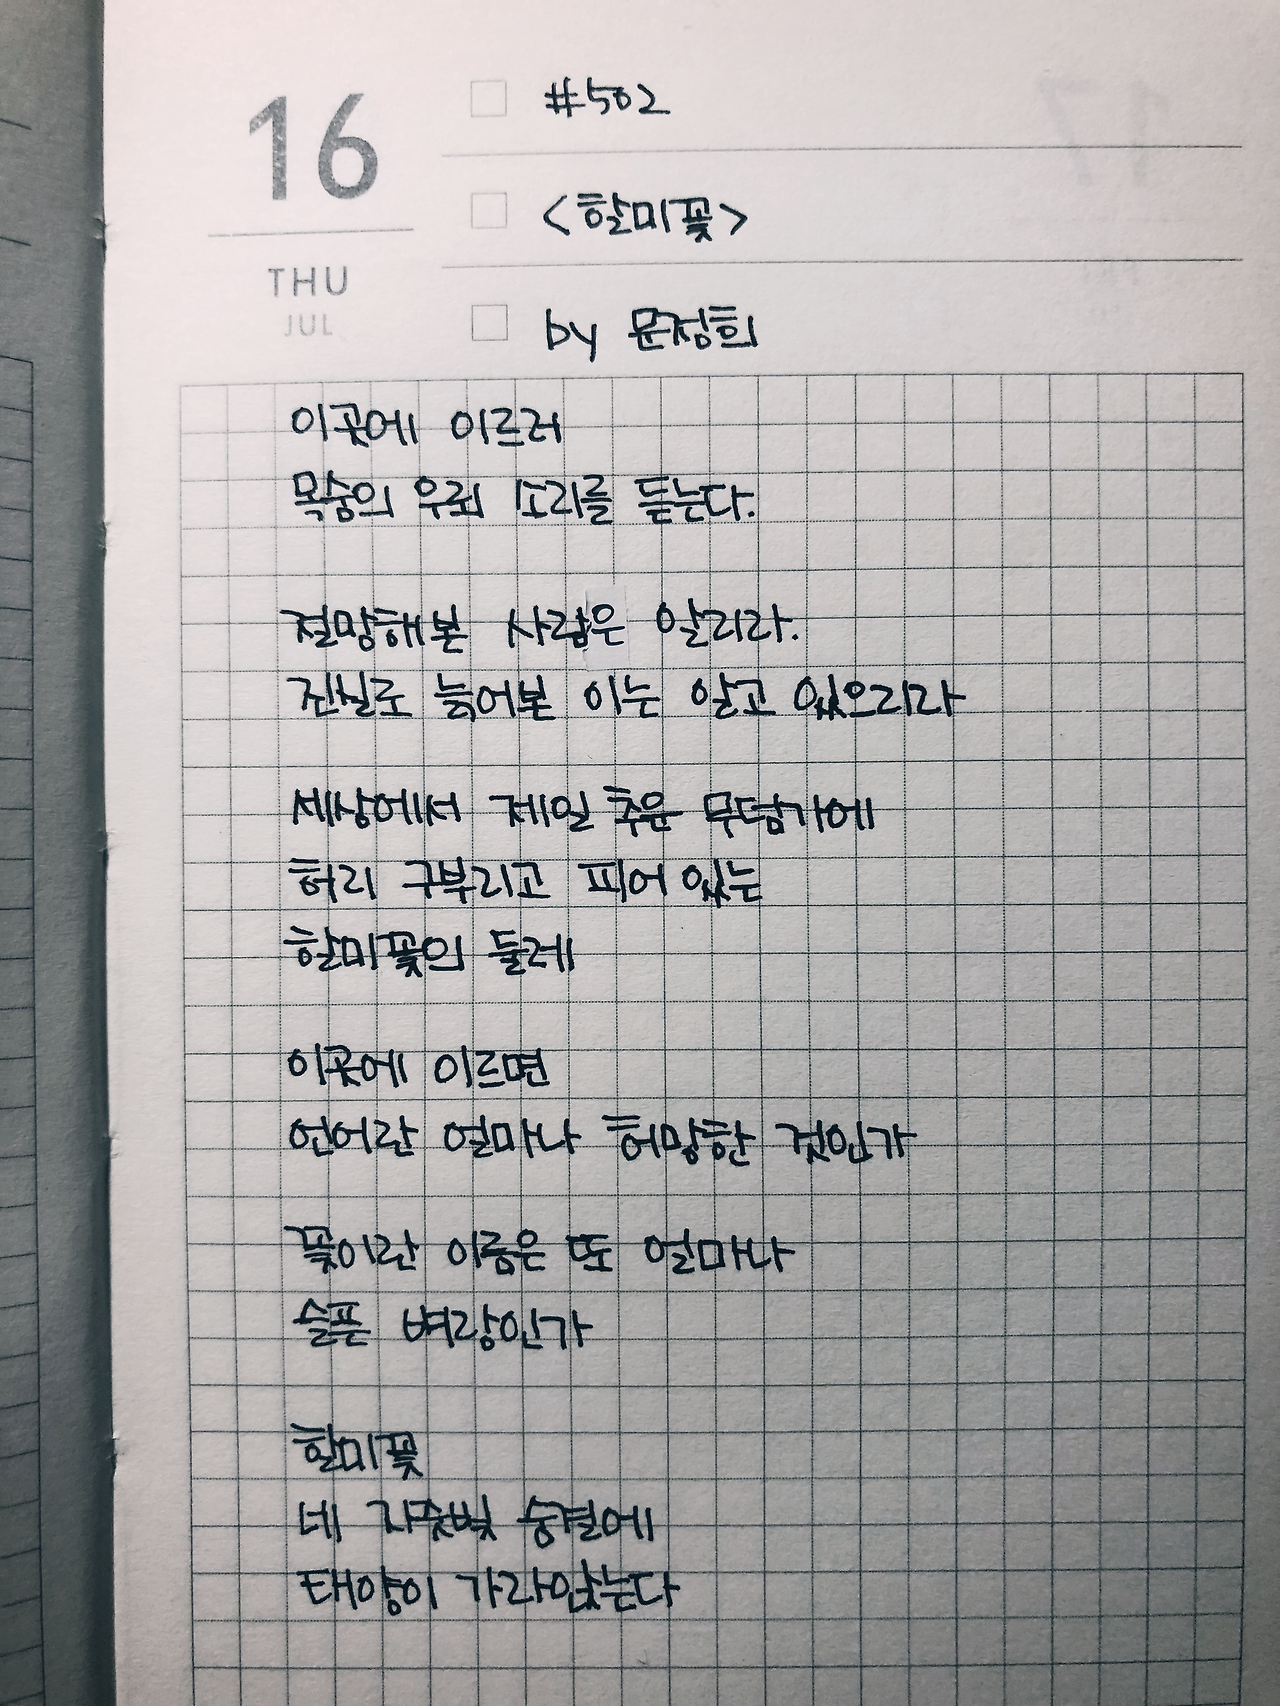 16
THU
JUL
#502
<할미꽃>
by 문정희
이곳에 이르러
목숨의 우뢰 소리를 듣는다.
절망해본 사람은 알리라.
진실로 늙어본 이는 알고 있으리라
세상에서 제일 추운 무덤가에
허리 구부리고 피어 있는
할미꽃의 둘레
이곳에 이르면
언어란 얼마나 허망한 것인가
꽃이란 이름은 또 얼마나
슬픈 벼랑인가
할미꽃
네 자줏빛 숨결에
태양이 가라앉는다